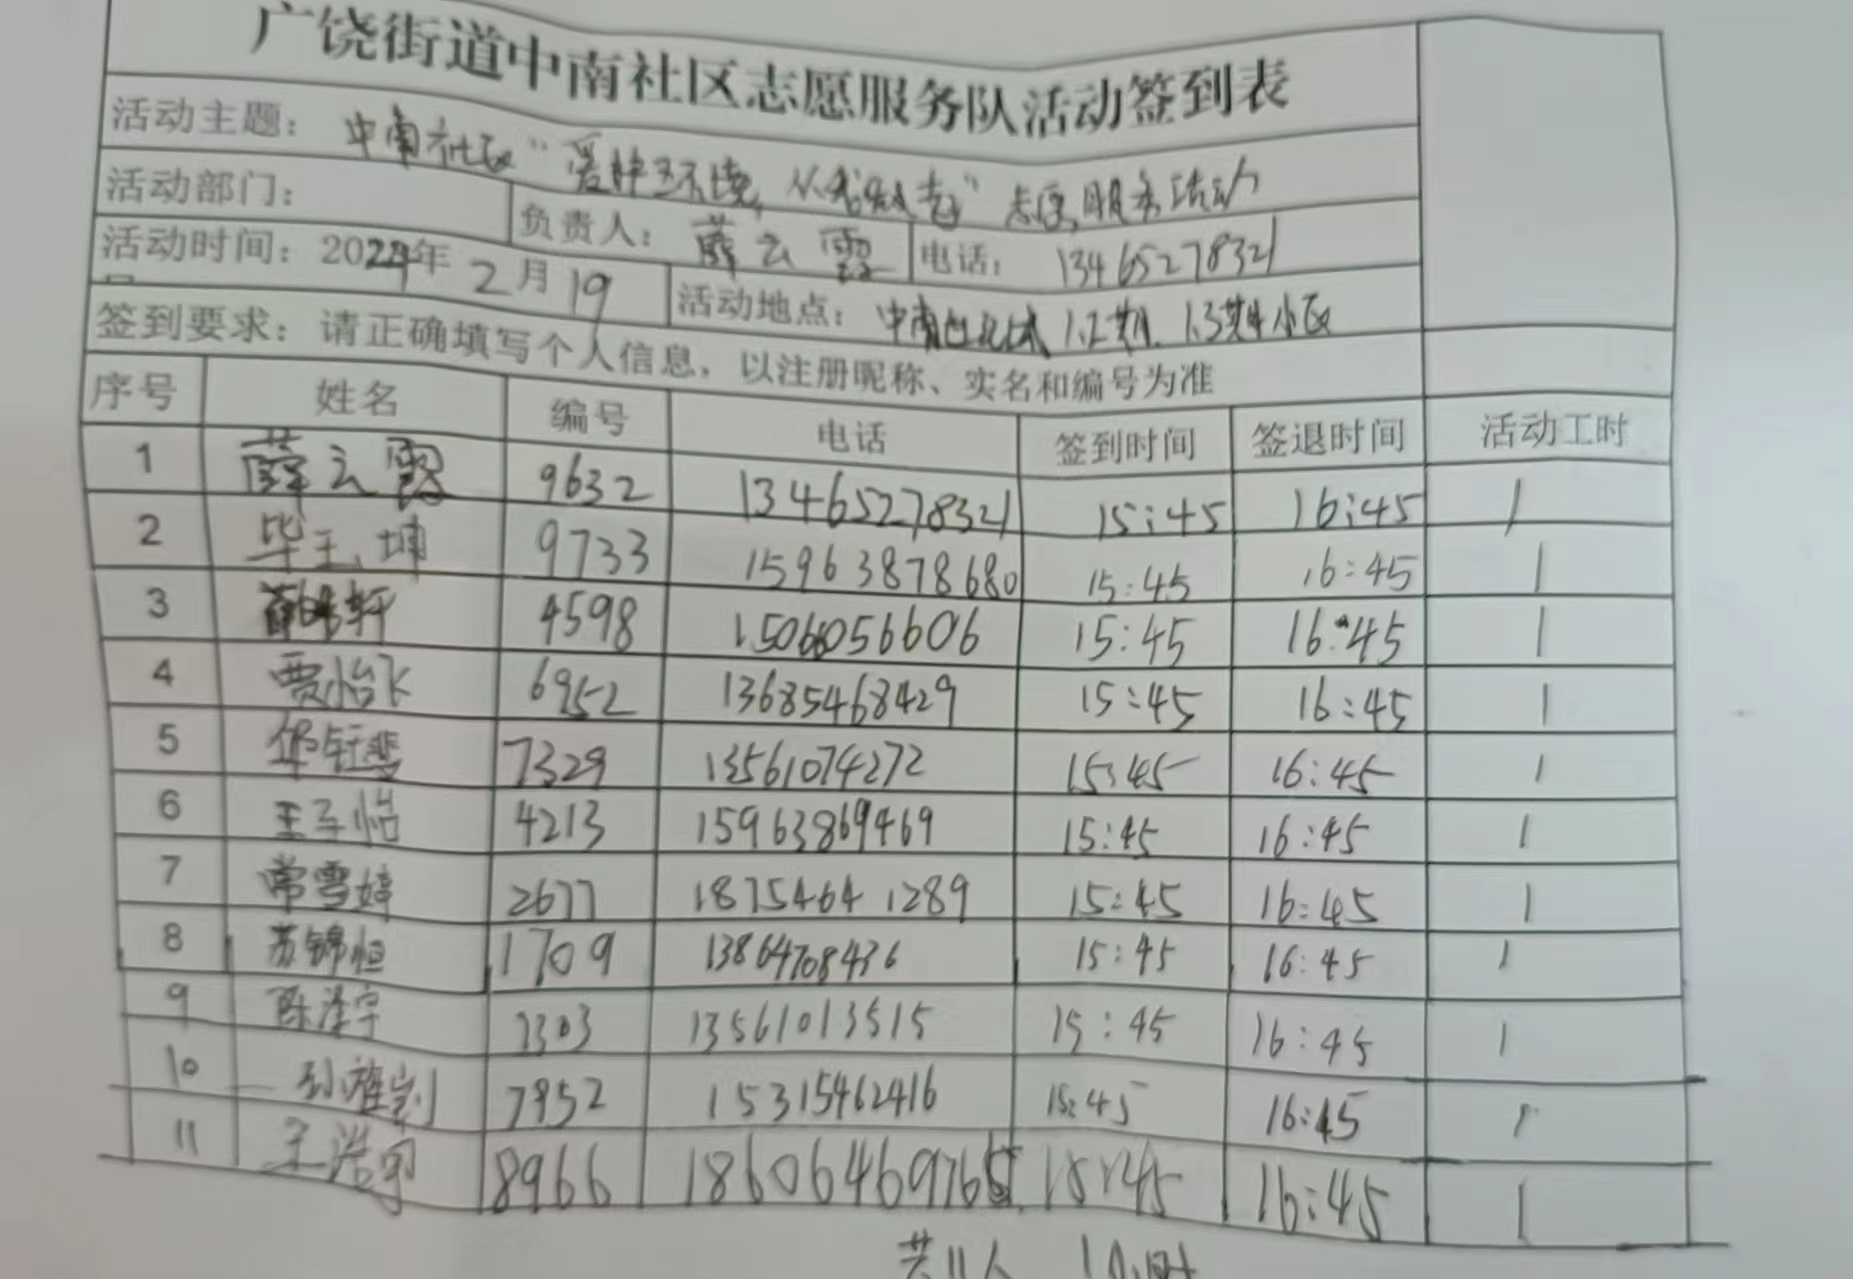 广饶街道中南社区志愿服务队活动签到表
活动主题：中南社区"爱护环境，从我做起"志愿服务活动
活动部门： 负责人：薛云霞 电话：13465278321
活动时间：2024年2月19 活动地点：中南 1.2期、1.3期小区
签到要求：请正确填写个人信息，以注册昵称、实名和编号为准
序号 姓名 编号 电话 签到时间 签退时间 活动工时
1 薛云霞 9632 13465278321 15:45 16:45 1
2 毕玉坤 9733 15963878680 15:45 16:45 1
3 4598 15066056606 15:45 16:45 1
4 贾怡飞 6952 13685468429 15:45 16:45 1
5 7329 13561074272 15:45 16:45 1
6 王子怡 4213 15963869469 15:45 16:45 1
7 常雪婷 2677 18754641289 15:45 16:45 1
8 苏锦恒 1709 13864708436 15:45 16:45 1
9 陈泽宇 7303 13561013515 15:45 16:45 1
10 7952 15315462416 15:45 16:45 1
11 王浩宇 8966 15:45 16:45 1
共11人 1小时